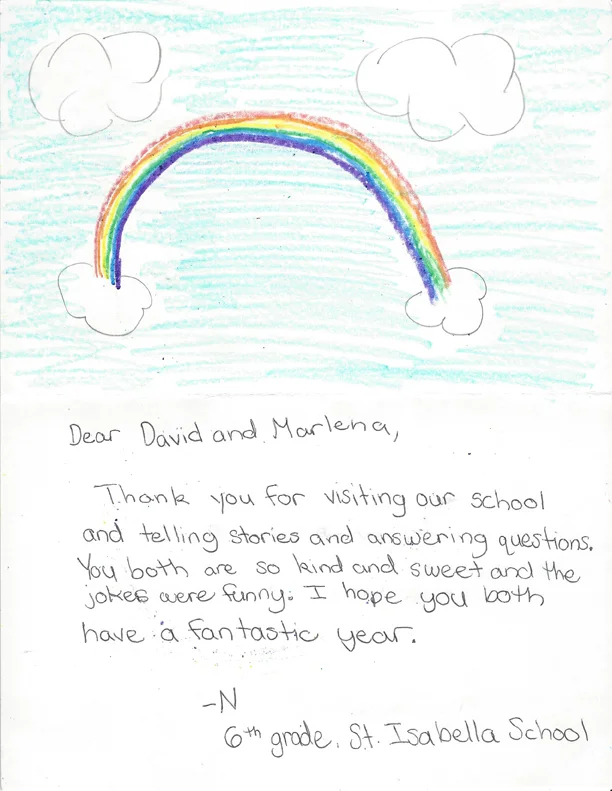 Dear David and Marlena,
Thank you for visiting our school
and telling stories and answering questions.
You both are so kind and sweet and the
jokes were funny. I hope you both
have a fantastic year.
-N
6th grade, St. Isabella School